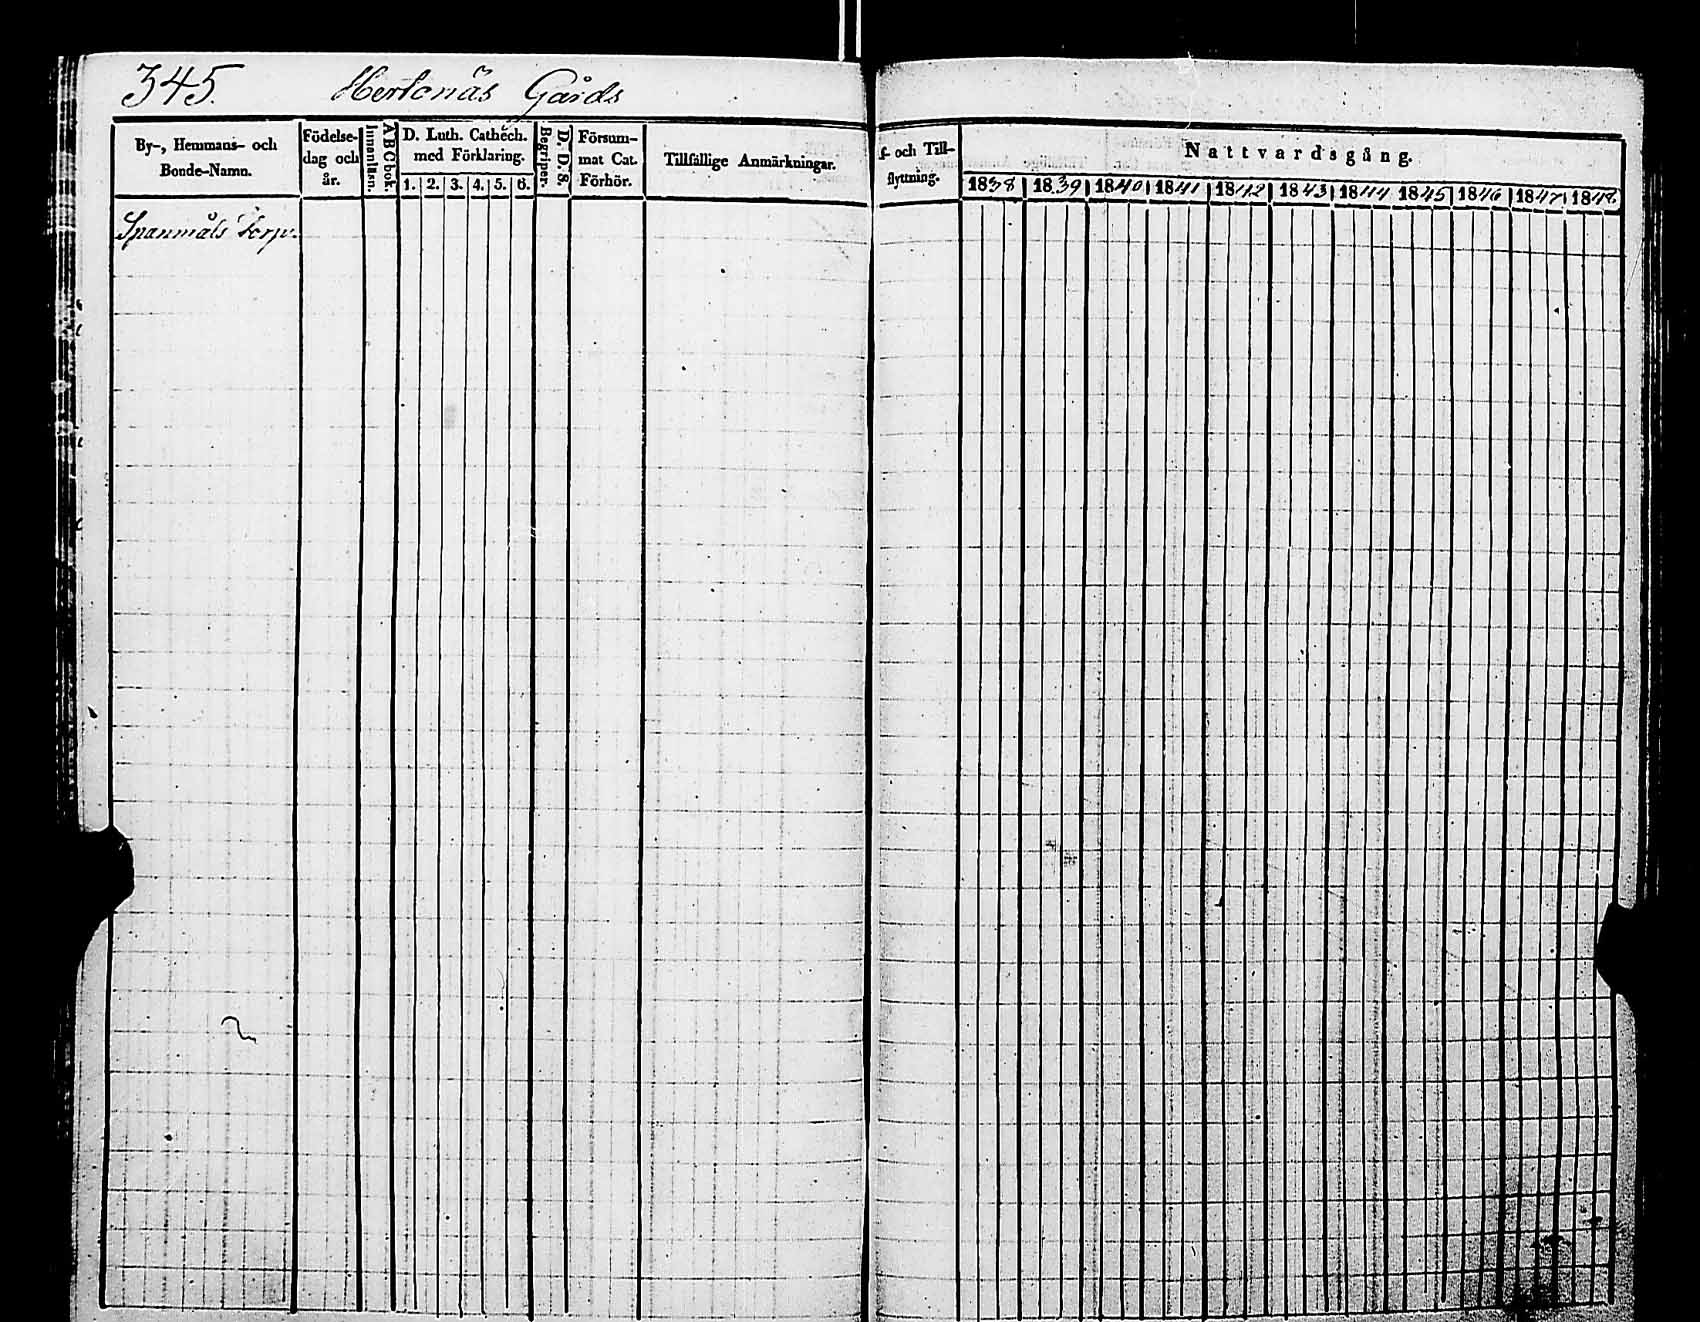 345. Hertonäs Gårds
By-, Hemmans- och
Bonde-Namn.
Födelse-
dag och
år.
ABCbok.
Innanläsn.
D. Luth. Cathech.
med Förklaring.
1. 2. 3. 4. 5. 6.
D. D. S.
Begriper.
Försum-
mat Cat.
Förhör.
Tillfällige Anmärkningar.
f- och Till-
flyttning.
Nattvardsgång.
1838 1839 1840 1841 1842 1843 1844 1845 1846 1847 1848
Spanmåls Torp.